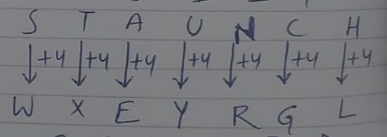 S T A U N C H
+4 +4 +4 +4 +4 +4 +4
W X E Y R G L